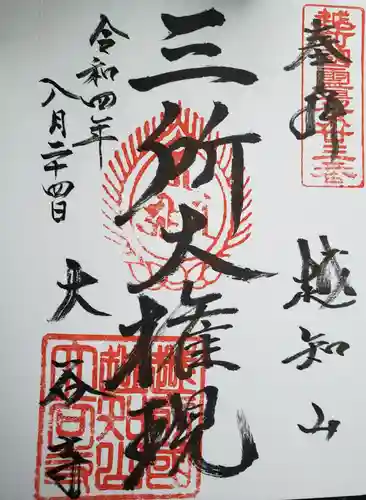 奉拝
越知山
三所大権現
令和四年
八月二十四日
大谷寺